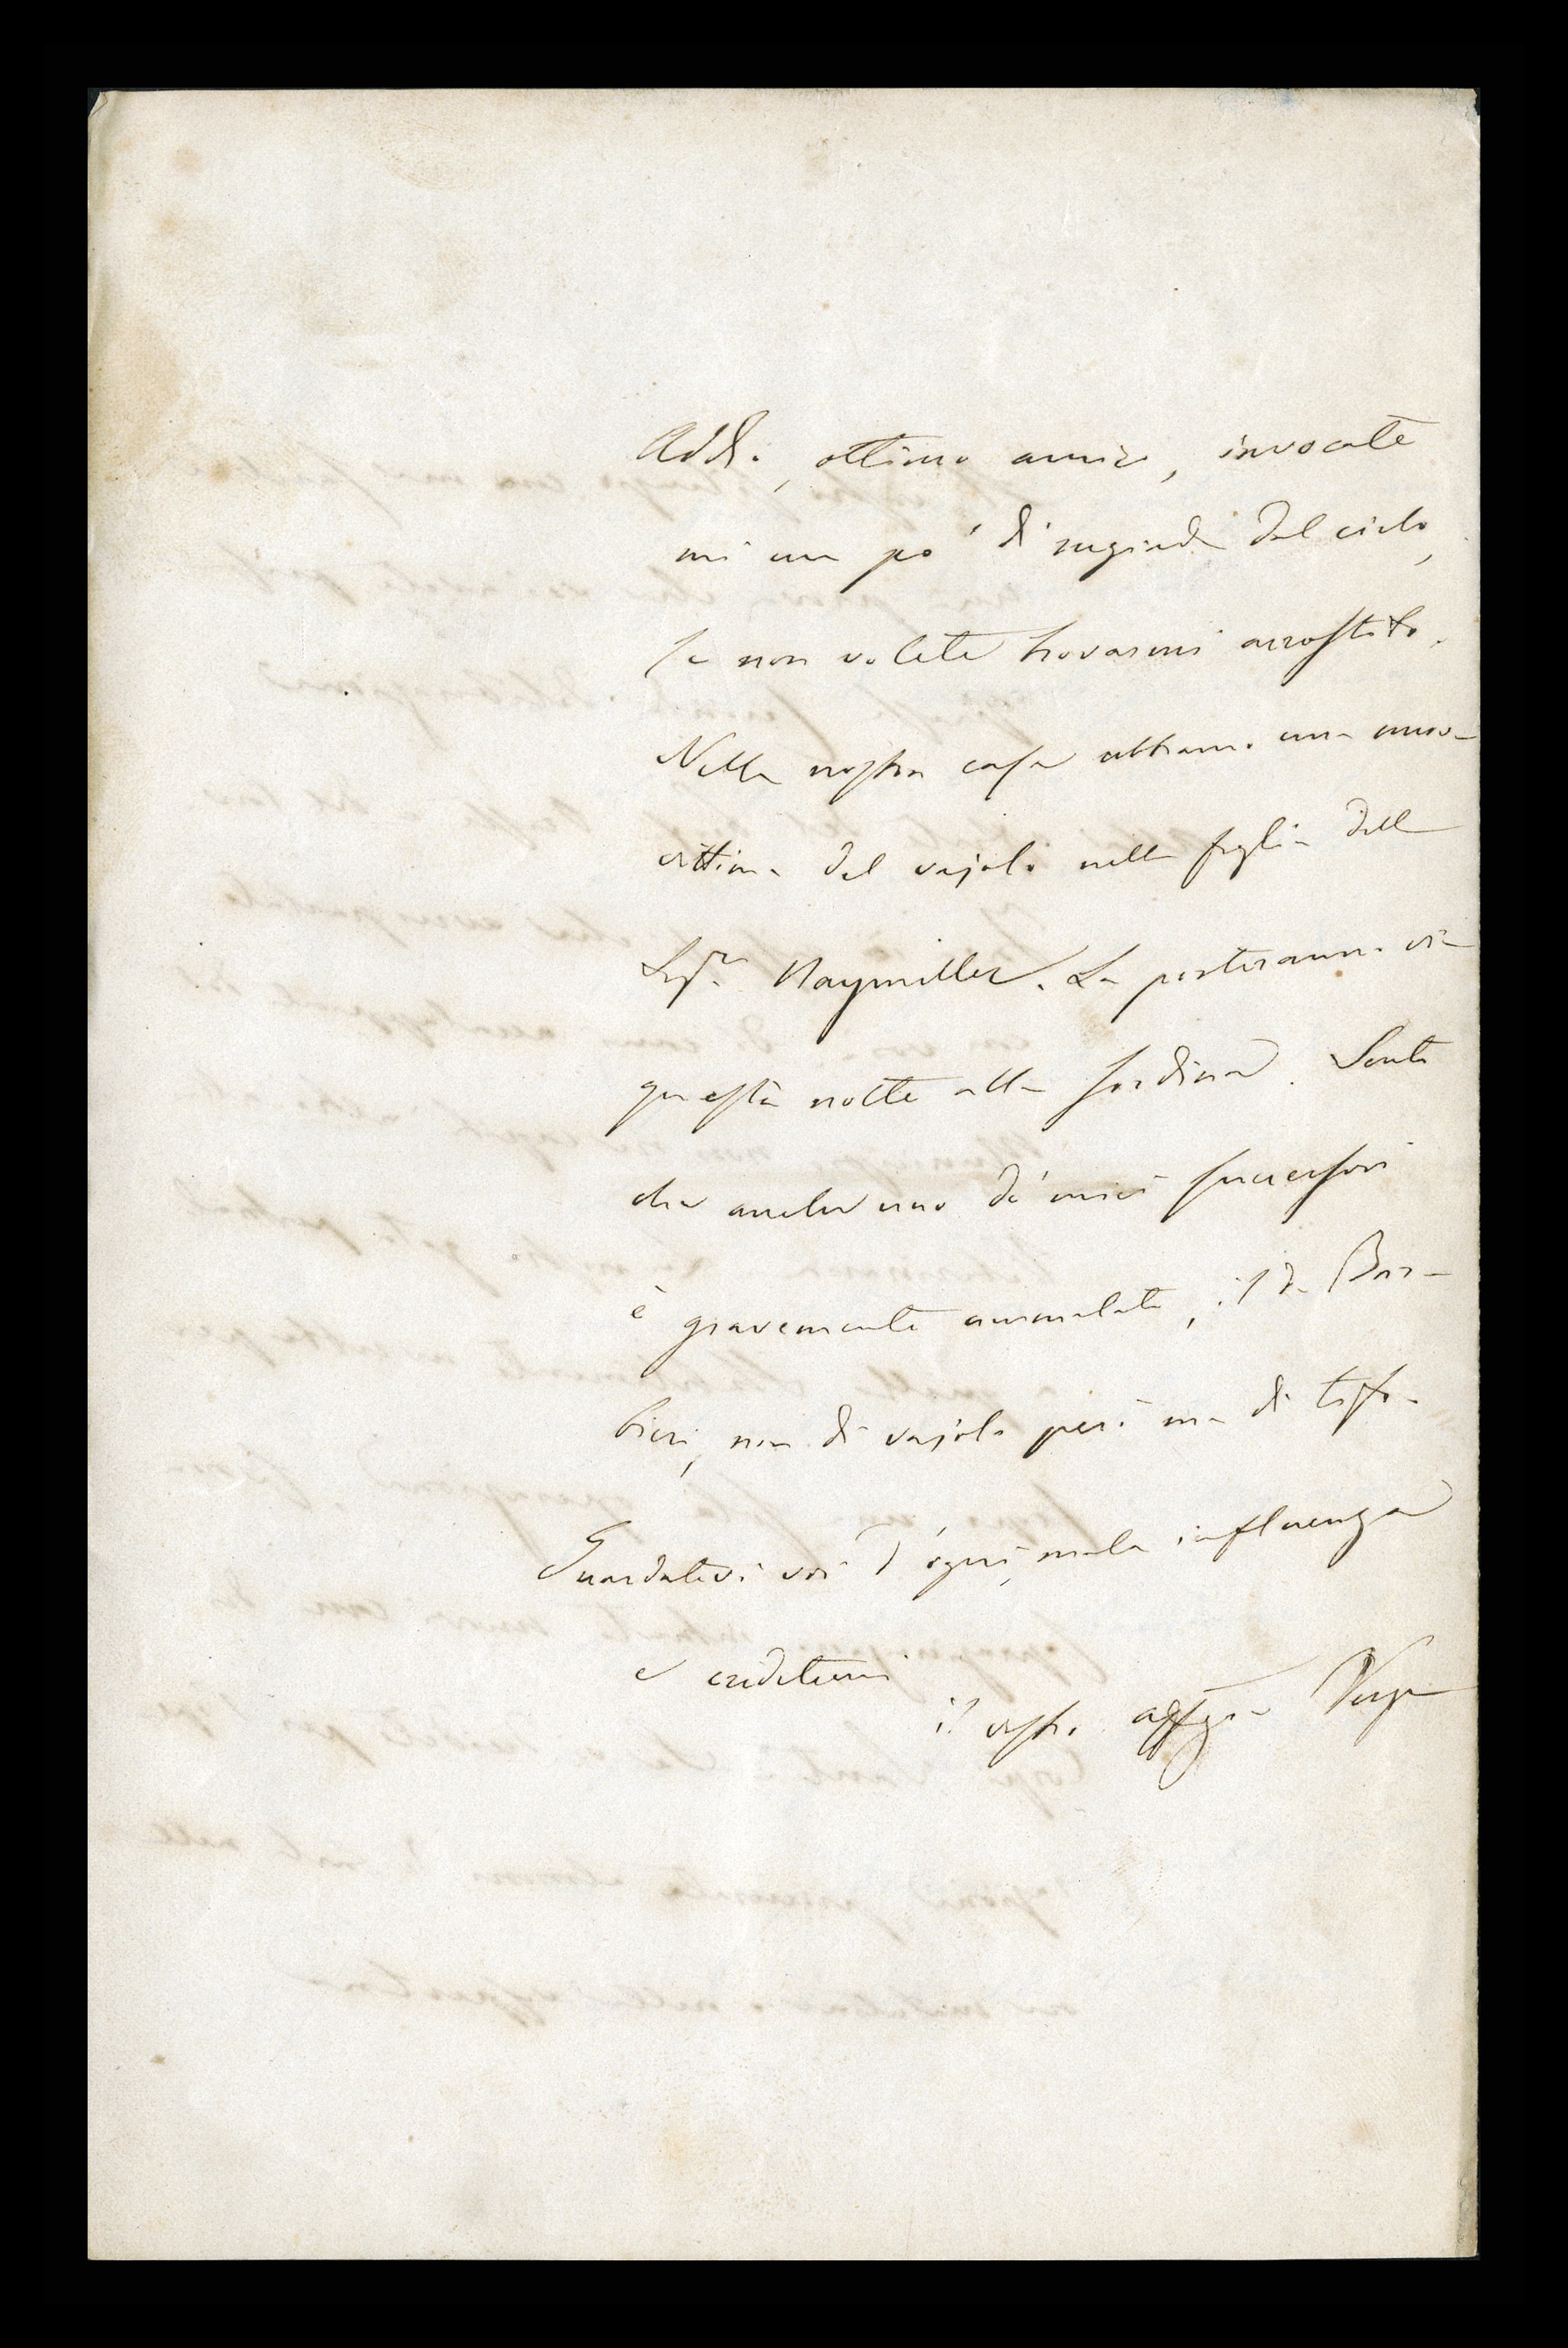 Addio, ottimo amico, invocate
mi un po' di rugiada dal cielo,
se non volete trovarmi arrostito.
Nella nostra casa abbiamo una nuova
vittima del vajolo nella figlia della
Sigra Haymiller. La porteranno via
questa notte alla sordina. Sento
che anche uno de' miei successori
è gravemente ammalato, il Dr Bar-
bieri, non di vajolo però ma di tifo.
Guardatevi voi d'ogni mala influenza
e credetemi
il vostro affmo Verga